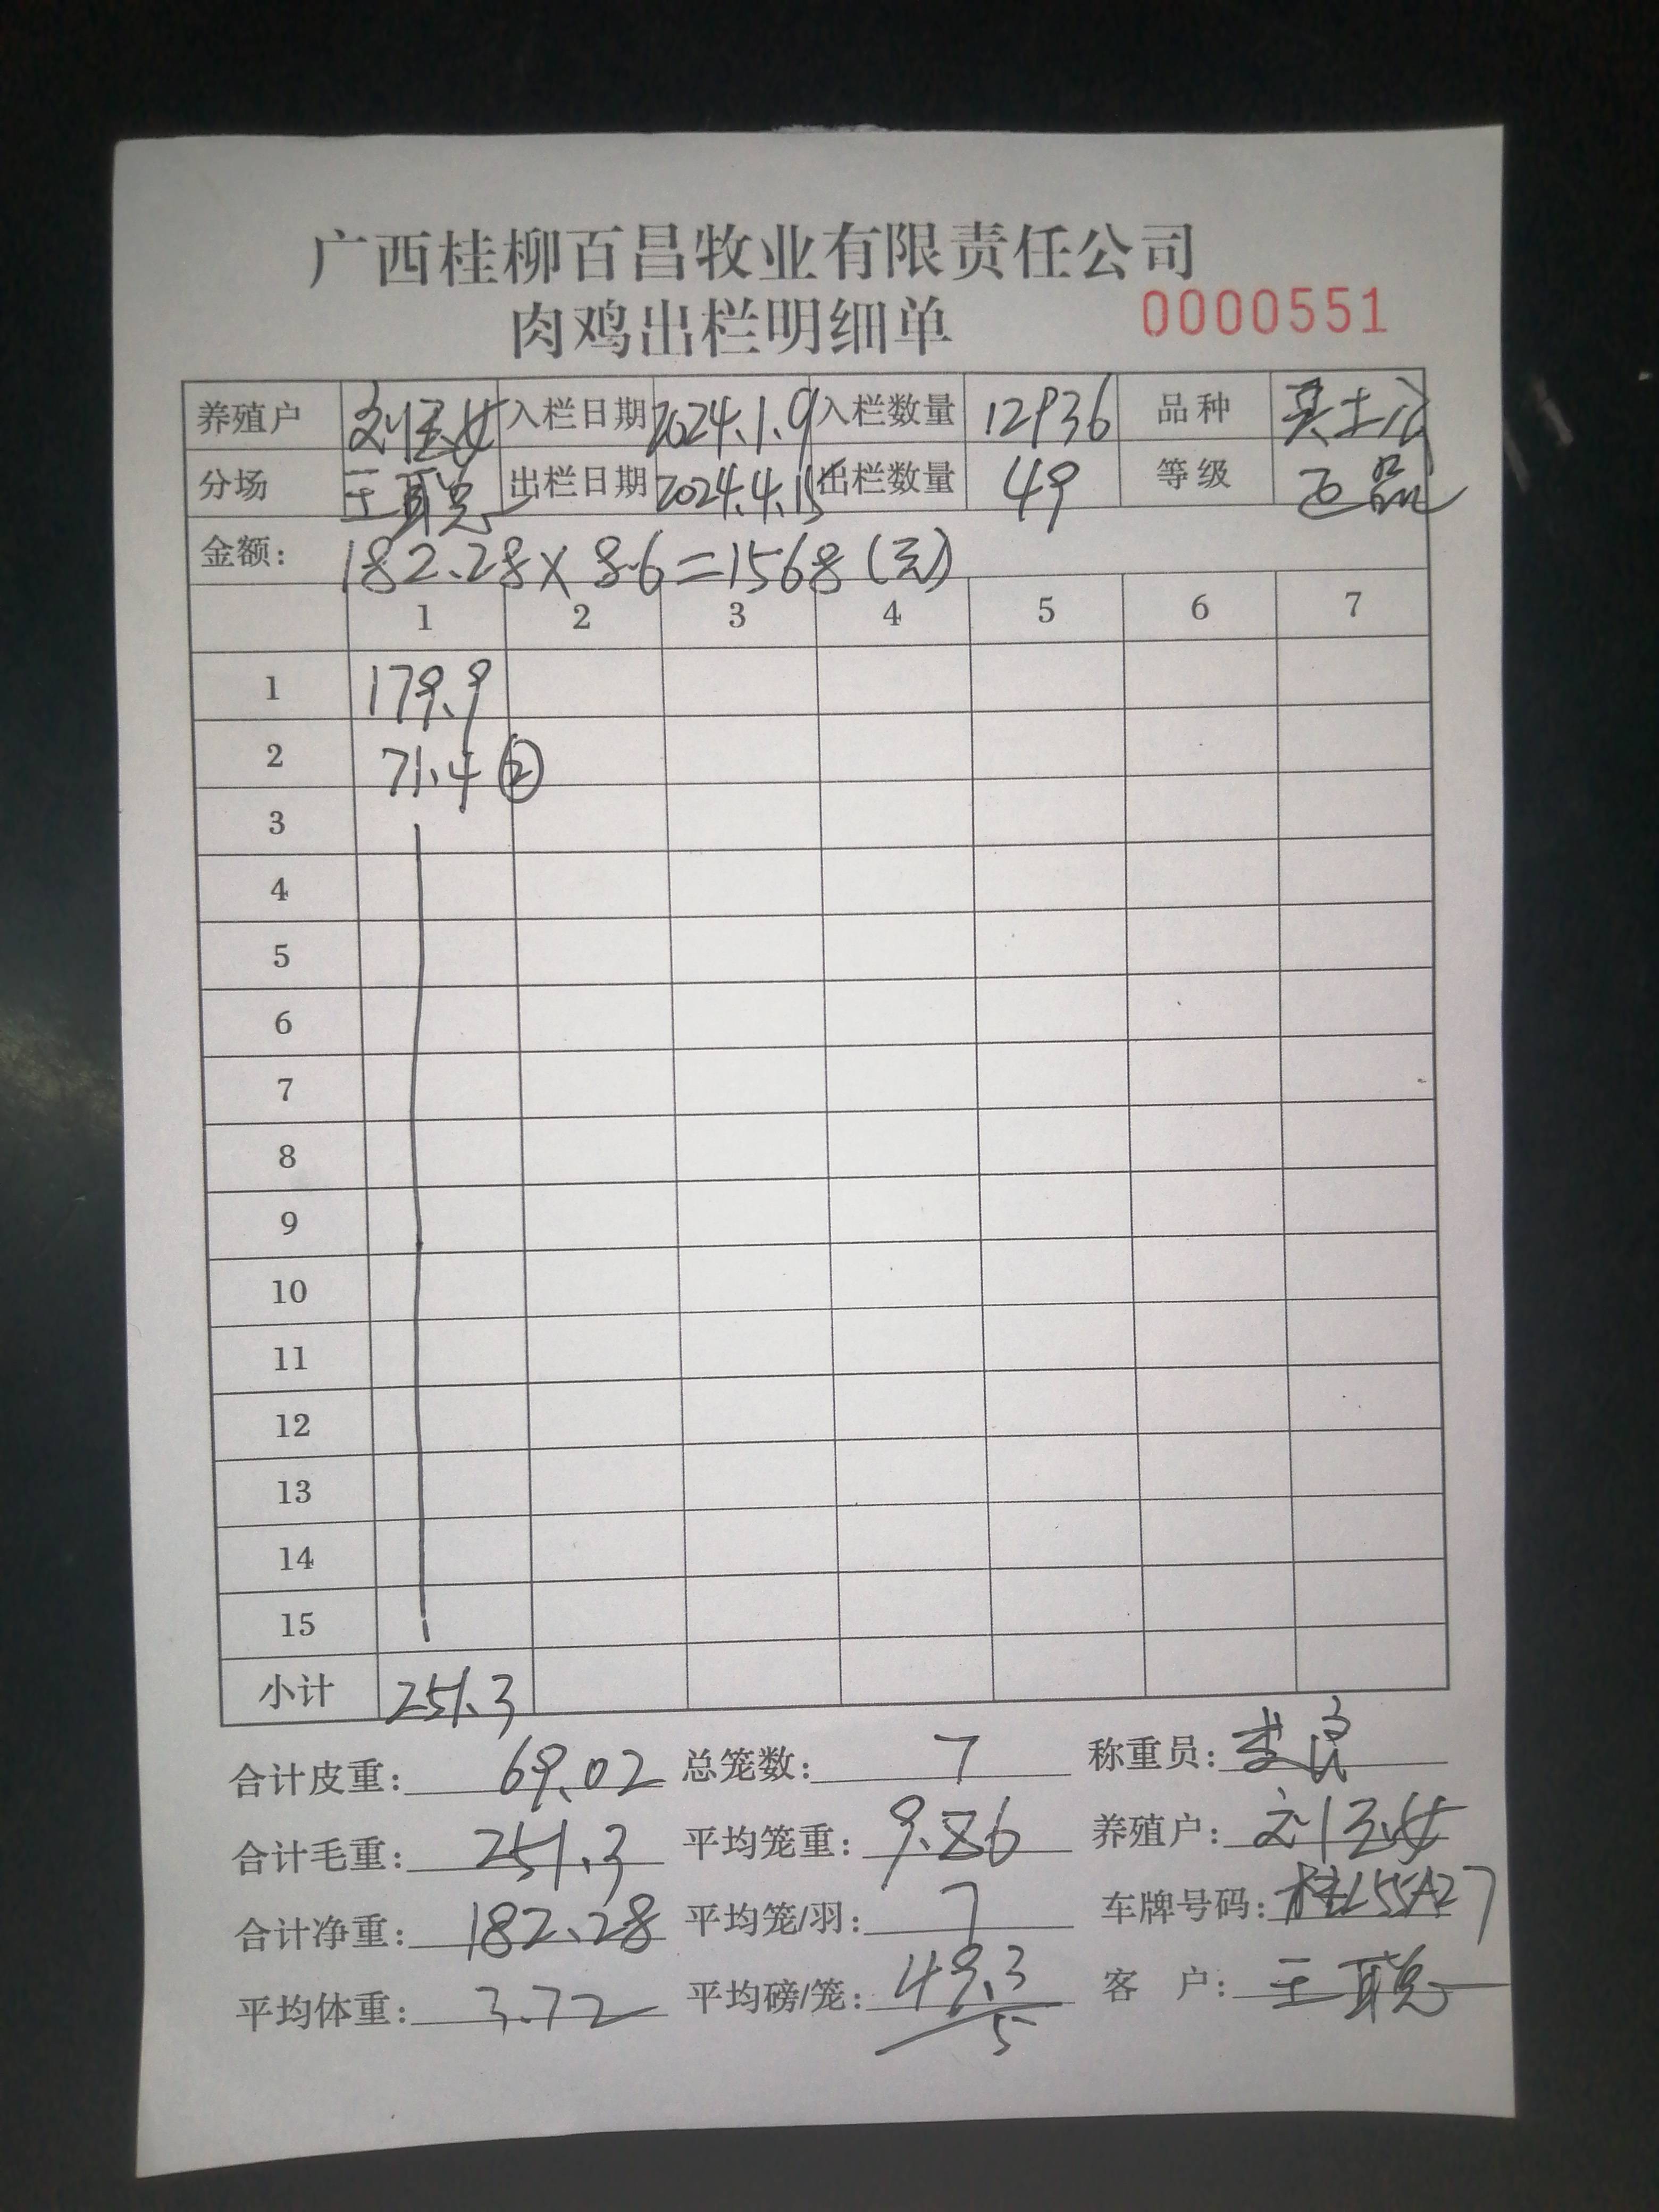 广西桂柳百昌牧业有限责任公司
肉鸡出栏明细单 0000551
养殖户 刘玉女 入栏日期 2024.1.9 入栏数量 12936 品种
分场 王聪 出栏日期 2024.4.15 出栏数量 49 等级 正品
金额: 182.28×8.6=1568(元)
1 2 3 4 5 6 7
1 179.9
2 71.4 ②
3
4
5
6
7
8
9
10
11
12
13
14
15
小计 251.3
合计皮重: 69.02 总笼数: 7 称重员:
合计毛重: 251.3 平均笼重: 9.86 养殖户: 刘玉女
合计净重: 182.28 平均笼/羽: 7 车牌号码: 桂L55A27
平均体重: 3.72 平均磅/笼: 49.3/5 客 户: 王聪